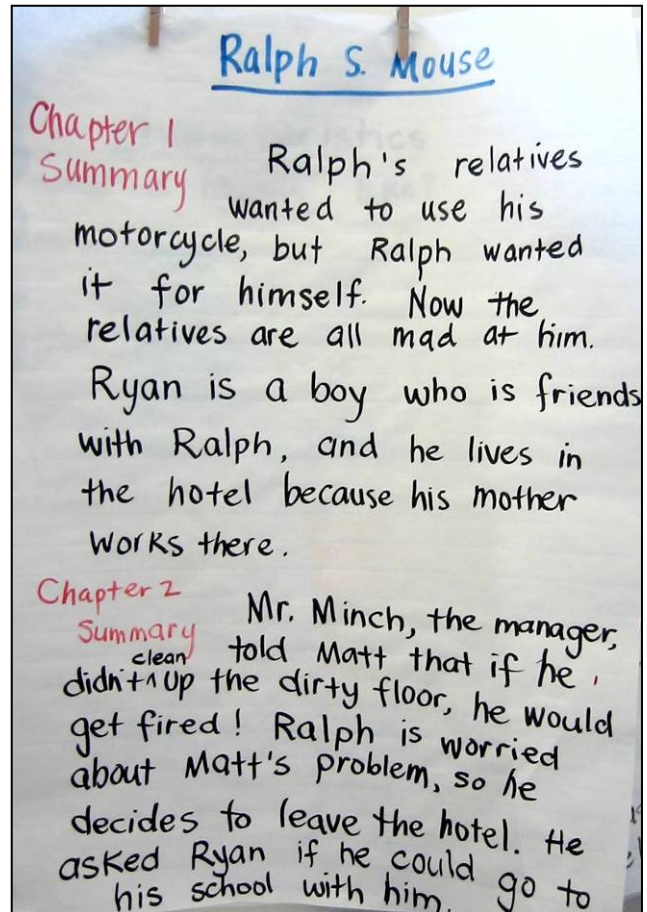 Ralph S. Mouse
Chapter 1
Summary
Ralph's relatives
wanted to use his
motorcycle, but Ralph wanted
it for himself. Now the
relatives are all mad at him.
Ryan is a boy who is friends
with Ralph, and he lives in
the hotel because his mother
works there.
Chapter 2
Summary
Mr. Minch, the manager,
told Matt that if he
didn't ^clean up the dirty floor, he would
get fired! Ralph is worried
about Matt's problem, so he
decides to leave the hotel. He
asked Ryan if he could go to
his school with him.